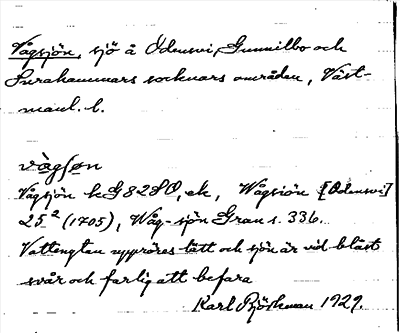 Vågsjön, sjö å Ödensvi, Gunnilbo och
Surahammars socknars område, Väst-
manl. l.
vågsøn
Vågsjön k G828O, ek, Wågsiön [Odensvi]
25² (1705), Wåg-sjön Grau s. 336.
Vattenytan uppröres lätt och sjön är vid blåst
svår och farlig att befara
Karl Björkman 1929.